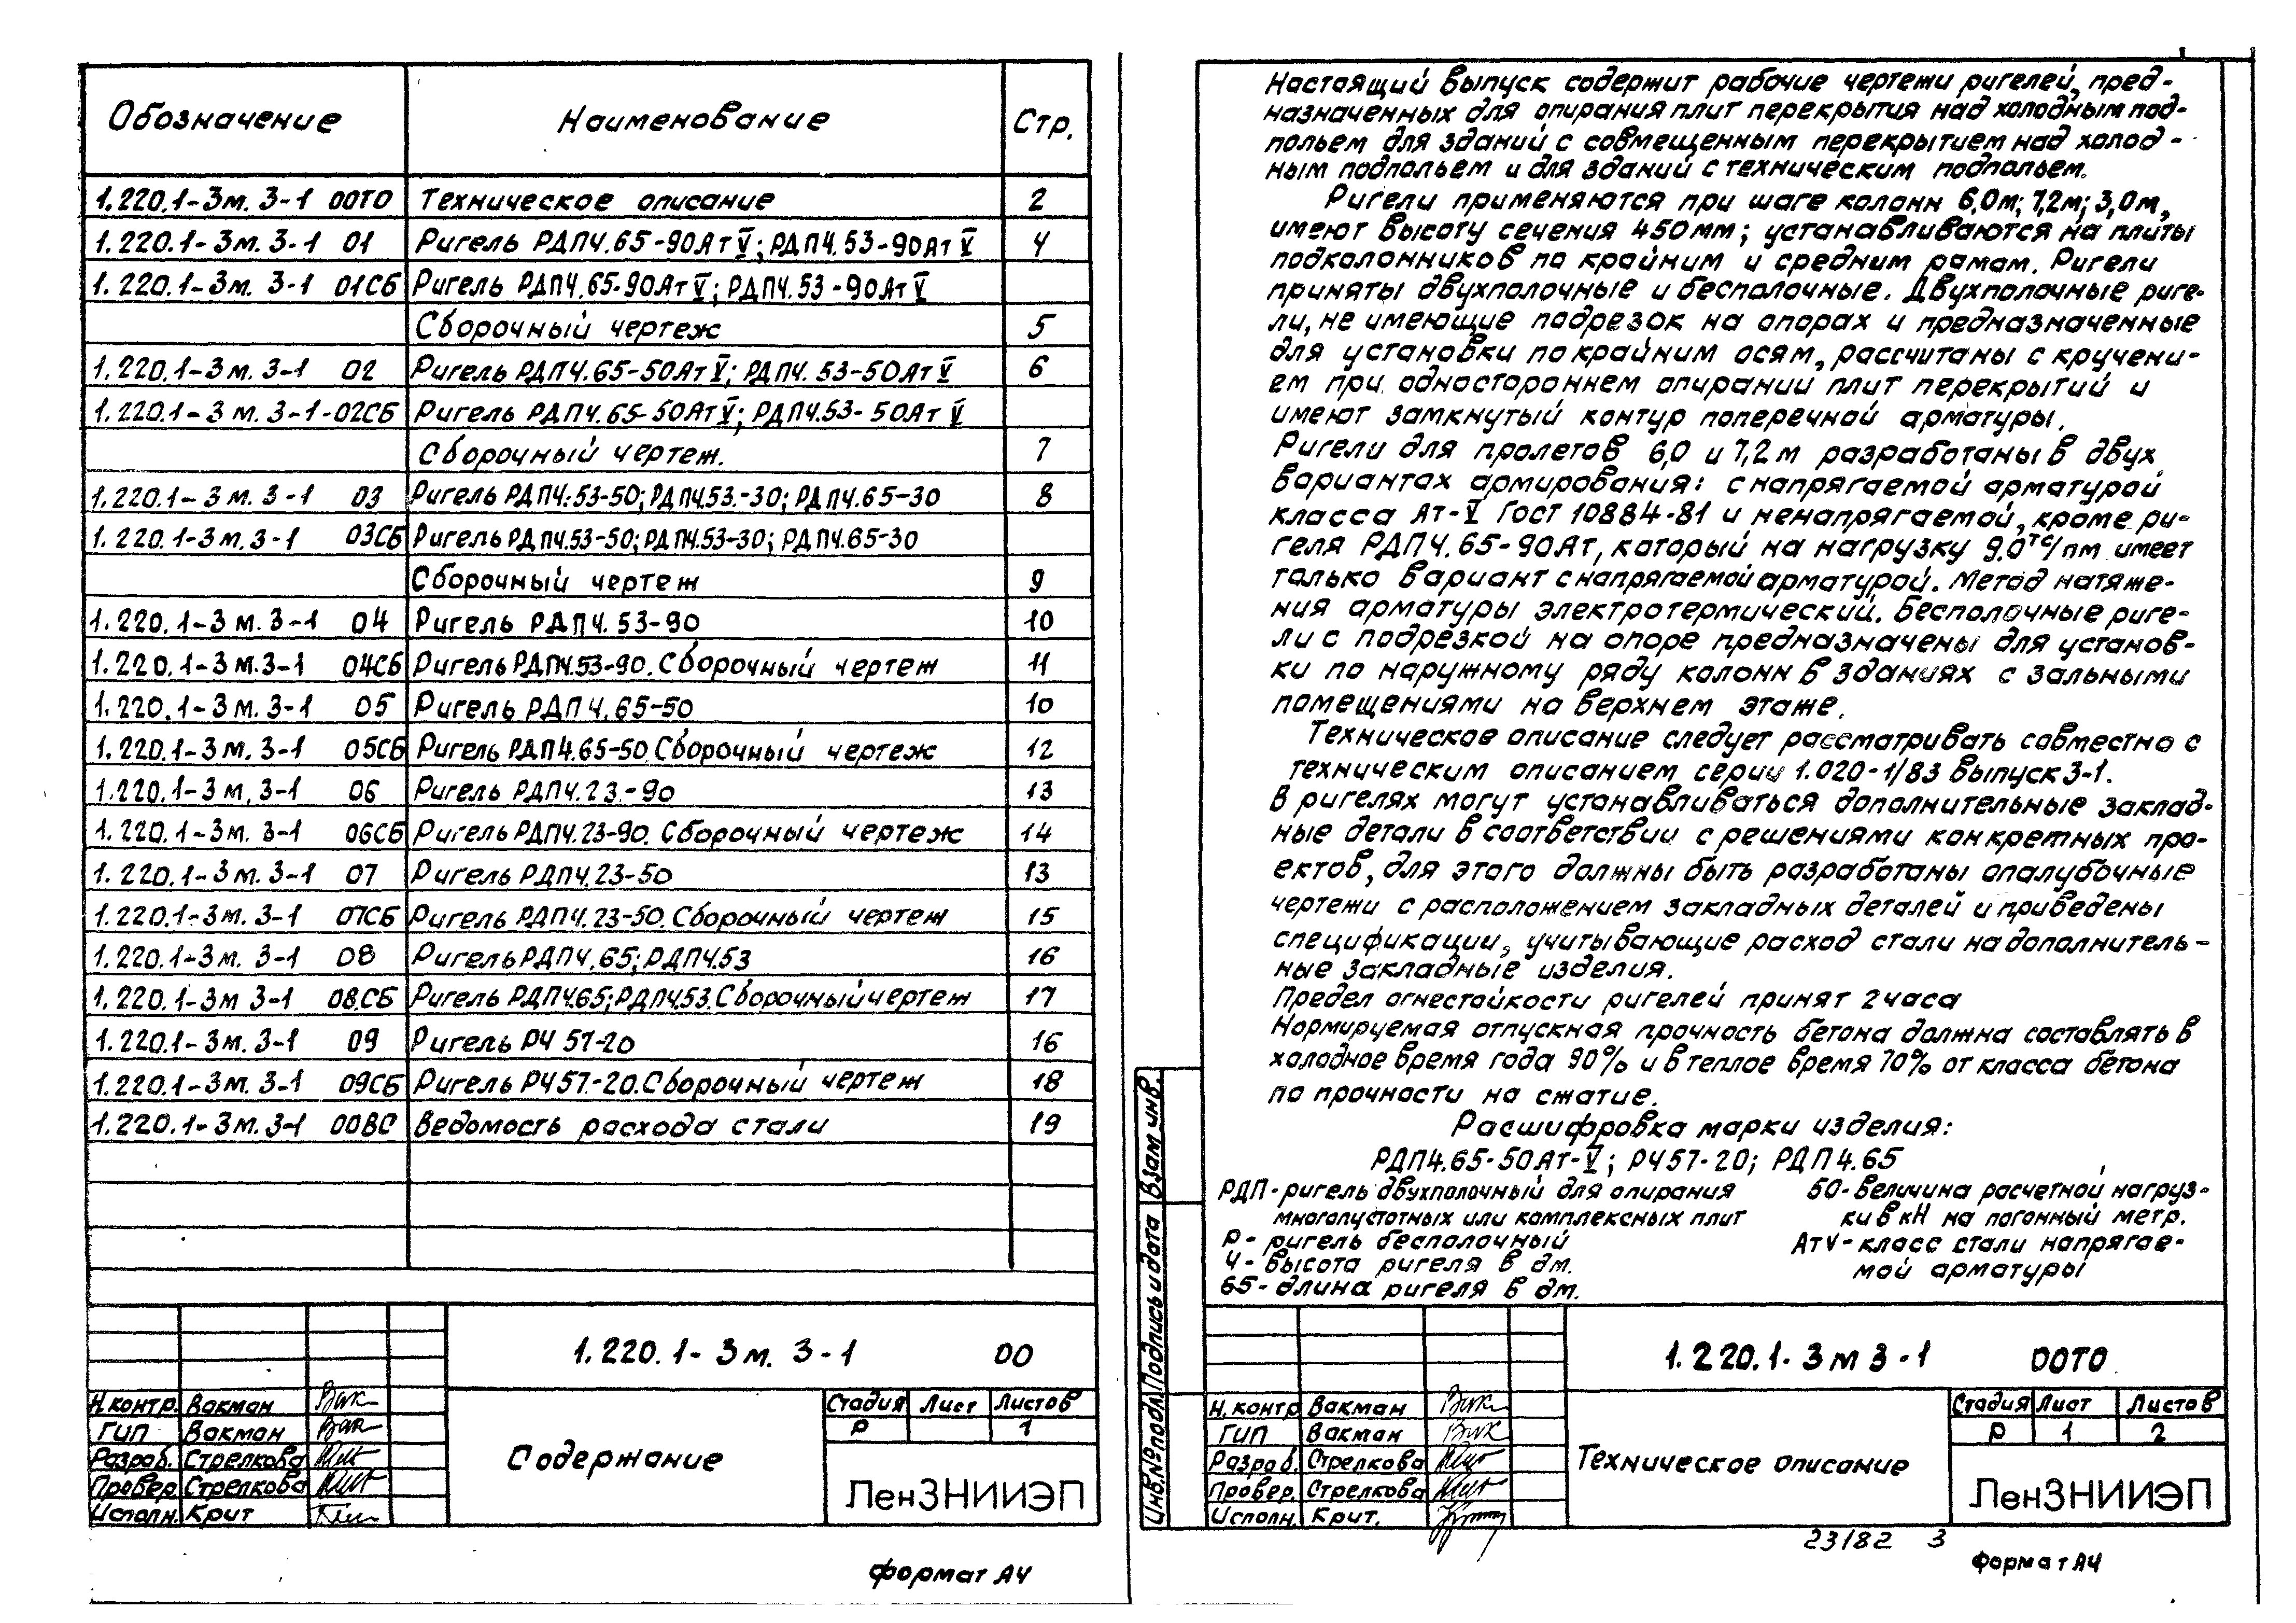 Обозначение Наименование Стр.
1.220.1-3м. 3-1 00ТО Техническое описание 2
1.220.1-3м. 3-1 01 Ригель РДП4.65-90АтV; РДП4.53-90АтV 4
1.220.1-3м. 3-1 01СБ Ригель РДП4.65-90АтV; РДП4.53-90АтV
Сборочный чертеж 5
1.220.1-3м. 3-1 02 Ригель РДП4.65-50АтV; РДП4.53-50АтV 6
1.220.1-3м. 3-1-02СБ Ригель РДП4.65-50АтV; РДП4.53-50АтV
Сборочный чертеж. 7
1.220.1-3м. 3-1 03 Ригель РДП4.53-50; РДП4.53.-30; РДП4.65-30 8
1.220.1-3м. 3-1 03СБ Ригель РДП4.53-50; РДП4.53-30; РДП4.65-30
Сборочный чертеж 9
1.220.1-3м. 3-1 04 Ригель РДП4.53-90 10
1.220.1-3м.3-1 04СБ Ригель РДП4.53-90. Сборочный чертеж 11
1.220.1-3м. 3-1 05 Ригель РДП4.65-50 10
1.220.1-3м. 3-1 05СБ Ригель РДП4.65-50 Сборочный чертеж 12
1.220.1-3м. 3-1 06 Ригель РДП4.23.-90 13
1.220.1-3м. 3-1 06СБ Ригель РДП4.23-90. Сборочный чертеж 14
1.220.1-3м. 3-1 07 Ригель РДП4.23-50 13
1.220.1-3м. 3-1 07СБ Ригель РДП4.23-50. Сборочный чертеж 15
1.220.1-3м. 3-1 08 Ригель РДП4.65; РДП4.53 16
1.220.1-3м 3-1 08.СБ Ригель РДП4.65; РДП4.53. Сборочный чертеж 17
1.220.1-3м. 3-1 09 Ригель Р4 57-20 16
1.220.1-3м. 3-1 09СБ Ригель Р4 57-20. Сборочный чертеж 18
1.220.1-3м. 3-1 00ВС Ведомость расхода стали 19
1.220.1-3м. 3-1 00
Н.контр. Вакман
ГИП Вакман
Разраб. Стрелкова
Провер. Стрелкова
Исполн. Крит
Содержание
Стадия Лист Листов
Р 1
ЛенЗНИИЭП
формат А4
Настоящий выпуск содержит рабочие чертежи ригелей, пред-
назначенных для опирания плит перекрытия над холодным под-
польем для зданий с совмещенным перекрытием над холод-
ным подпольем и для зданий с техническим подпольем.
Ригели применяются при шаге колонн 6,0м; 7,2м; 3,0м,
имеют высоту сечения 450мм; устанавливаются на плиты
подколонников по крайним и средним рамам. Ригели
приняты двухполочные и бесполочные. Двухполочные риге-
ли, не имеющие подрезок на опорах и предназначенные
для установки по крайним осям, рассчитаны с кручени-
ем при одностороннем опирании плит перекрытий и
имеют замкнутый контур поперечной арматуры.
Ригели для пролетов 6,0 и 7,2 м разработаны в двух
вариантах армирования: с напрягаемой арматурой
класса Ат-V ГОСТ 10884-81 и ненапрягаемой, кроме ри-
геля РДП4.65-90Ат, который на нагрузку 9.0тс/пм имеет
только вариант с напрягаемой арматурой. Метод натяже-
ния арматуры электротермический. Бесполочные риге-
ли с подрезкой на опоре предназначены для установ-
ки по наружному ряду колонн в зданиях с зальными
помещениями на верхнем этаже.
Техническое описание следует рассматривать совместно с
техническим описанием серии 1.020-1/83 выпуск 3-1.
В ригелях могут устанавливаться дополнительные заклад-
ные детали в соответствии с решениями конкретных про-
ектов, для этого должны быть разработаны опалубочные
чертежи с расположением закладных деталей и приведены
спецификации, учитывающие расход стали на дополнитель-
ные закладные изделия.
Предел огнестойкости ригелей принят 2 часа
Нормируемая отпускная прочность бетона должна составлять в
холодное время года 90% и в теплое время 70% от класса бетона
по прочности на сжатие.
Расшифровка марки изделия:
РДП4.65-50Ат-V; Р4 57-20; РДП4.65
РДП-ригель двухполочный для опирания
многопустотных или комплексных плит
Р- ригель бесполочный
4- высота ригеля в дм.
65- длина ригеля в дм.
50-величина расчетной нагруз-
ки в кН на погонный метр.
АтV-класс стали напрягае-
мой арматуры
Инв.№ подл. Подпись и дата Взам инв.
1.220.1-3м 3-1 00ТО
Н.контр Вакман
ГИП Вакман
Разраб. Стрелкова
Провер. Стрелкова
Исполн. Крит.
Техническое описание
Стадия Лист Листов
Р 1 2
ЛенЗНИИЭП
23182 3
формат А4